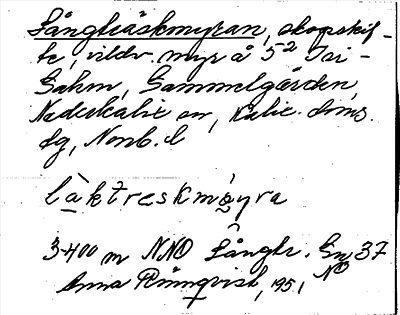 Långträskmyran, skogsskif-
te, vildv. myr å 5² Isi-
Gahm, Gammelgården,
Nederkalix sn, Kalix doms.
dg, Nonb. l
làktreskmỳra
3-400 m NNO Långtr. Gn 37
NO
Anna Rönnqvist, 1951